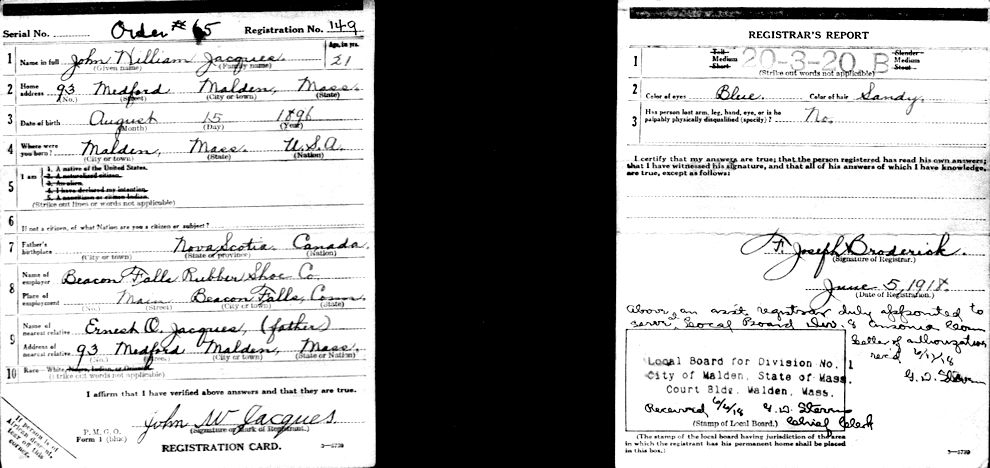 Serial No. Order # 65 Registration No. 149
1 Name in full John William Jacques Age, in yrs. 21
(Given name) (Family name)
2 Home address 93 Medford Malden, Mass.
(No.) (Street) (City or town) (State)
3 Date of birth August 15 1896
(Month) (Day) (Year)
4 Where were you born? Malden, Mass. U.S.A.
(City or town) (State) (Nation)
5 I am
1. A native of the United States.
2. A naturalized citizen.
3. An alien.
4. I have declared my intention.
5. A noncitizen or citizen Indian.
(Strike out lines or words not applicable)
6 If not a citizen, of what Nation are you a citizen or subject?
7 Father's birthplace Nova Scotia Canada.
(City or town) (State or province) (Nation)
8 Name of employer Beacon Falls Rubber Shoe Co.
Place of employment Main Beacon Falls, Conn.
(No.) (Street) (City or town) (State)
9 Name of nearest relative Ernest O. Jacques, (father)
Address of nearest relative 93 Medford Malden, Mass.
(No.) (Street) (City or town) (State or Nation)
10 Race—White, Negro, Indian, or Oriental
(Strike out words not applicable)
I affirm that I have verified above answers and that they are true.
John W Jacques.
(Signature or Mark of Registrant.)
P. M. G. O.
Form 1 (blue)
REGISTRATION CARD.
If person is of African descent, tear off this corner.
REGISTRAR'S REPORT
1 Tall Medium Short 20-3-20 B Slender Medium Stout
(Strike out words not applicable)
2 Color of eyes Blue. Color of hair Sandy.
3 Has person lost arm, leg, hand, eye, or is he palpably physically disqualified (specify)? No.
I certify that my answers are true; that the person registered has read his own answers;
that I have witnessed his signature, and that all of his answers of which I have knowledge,
are true, except as follows:
F. Joseph Broderick.
(Signature of Registrar.)
June 5, 1918
(Date of Registration.)
Above, an asst. registrar duly appointed to
serve, Local Board Div. 8 Ansonia Conn
Letter of authorization
rec'd 6/11/18
G. D. Stevens
Local Board for Division No. 1
City of Malden, State of Mass.
Court Bldg. Malden, Mass.
Received 6/6/18 G. D. Stevens
(Stamp of Local Board.) Chief Clerk
(The stamp of the local board having jurisdiction of the area
in which the registrant has his permanent home shall be placed
in this box.)